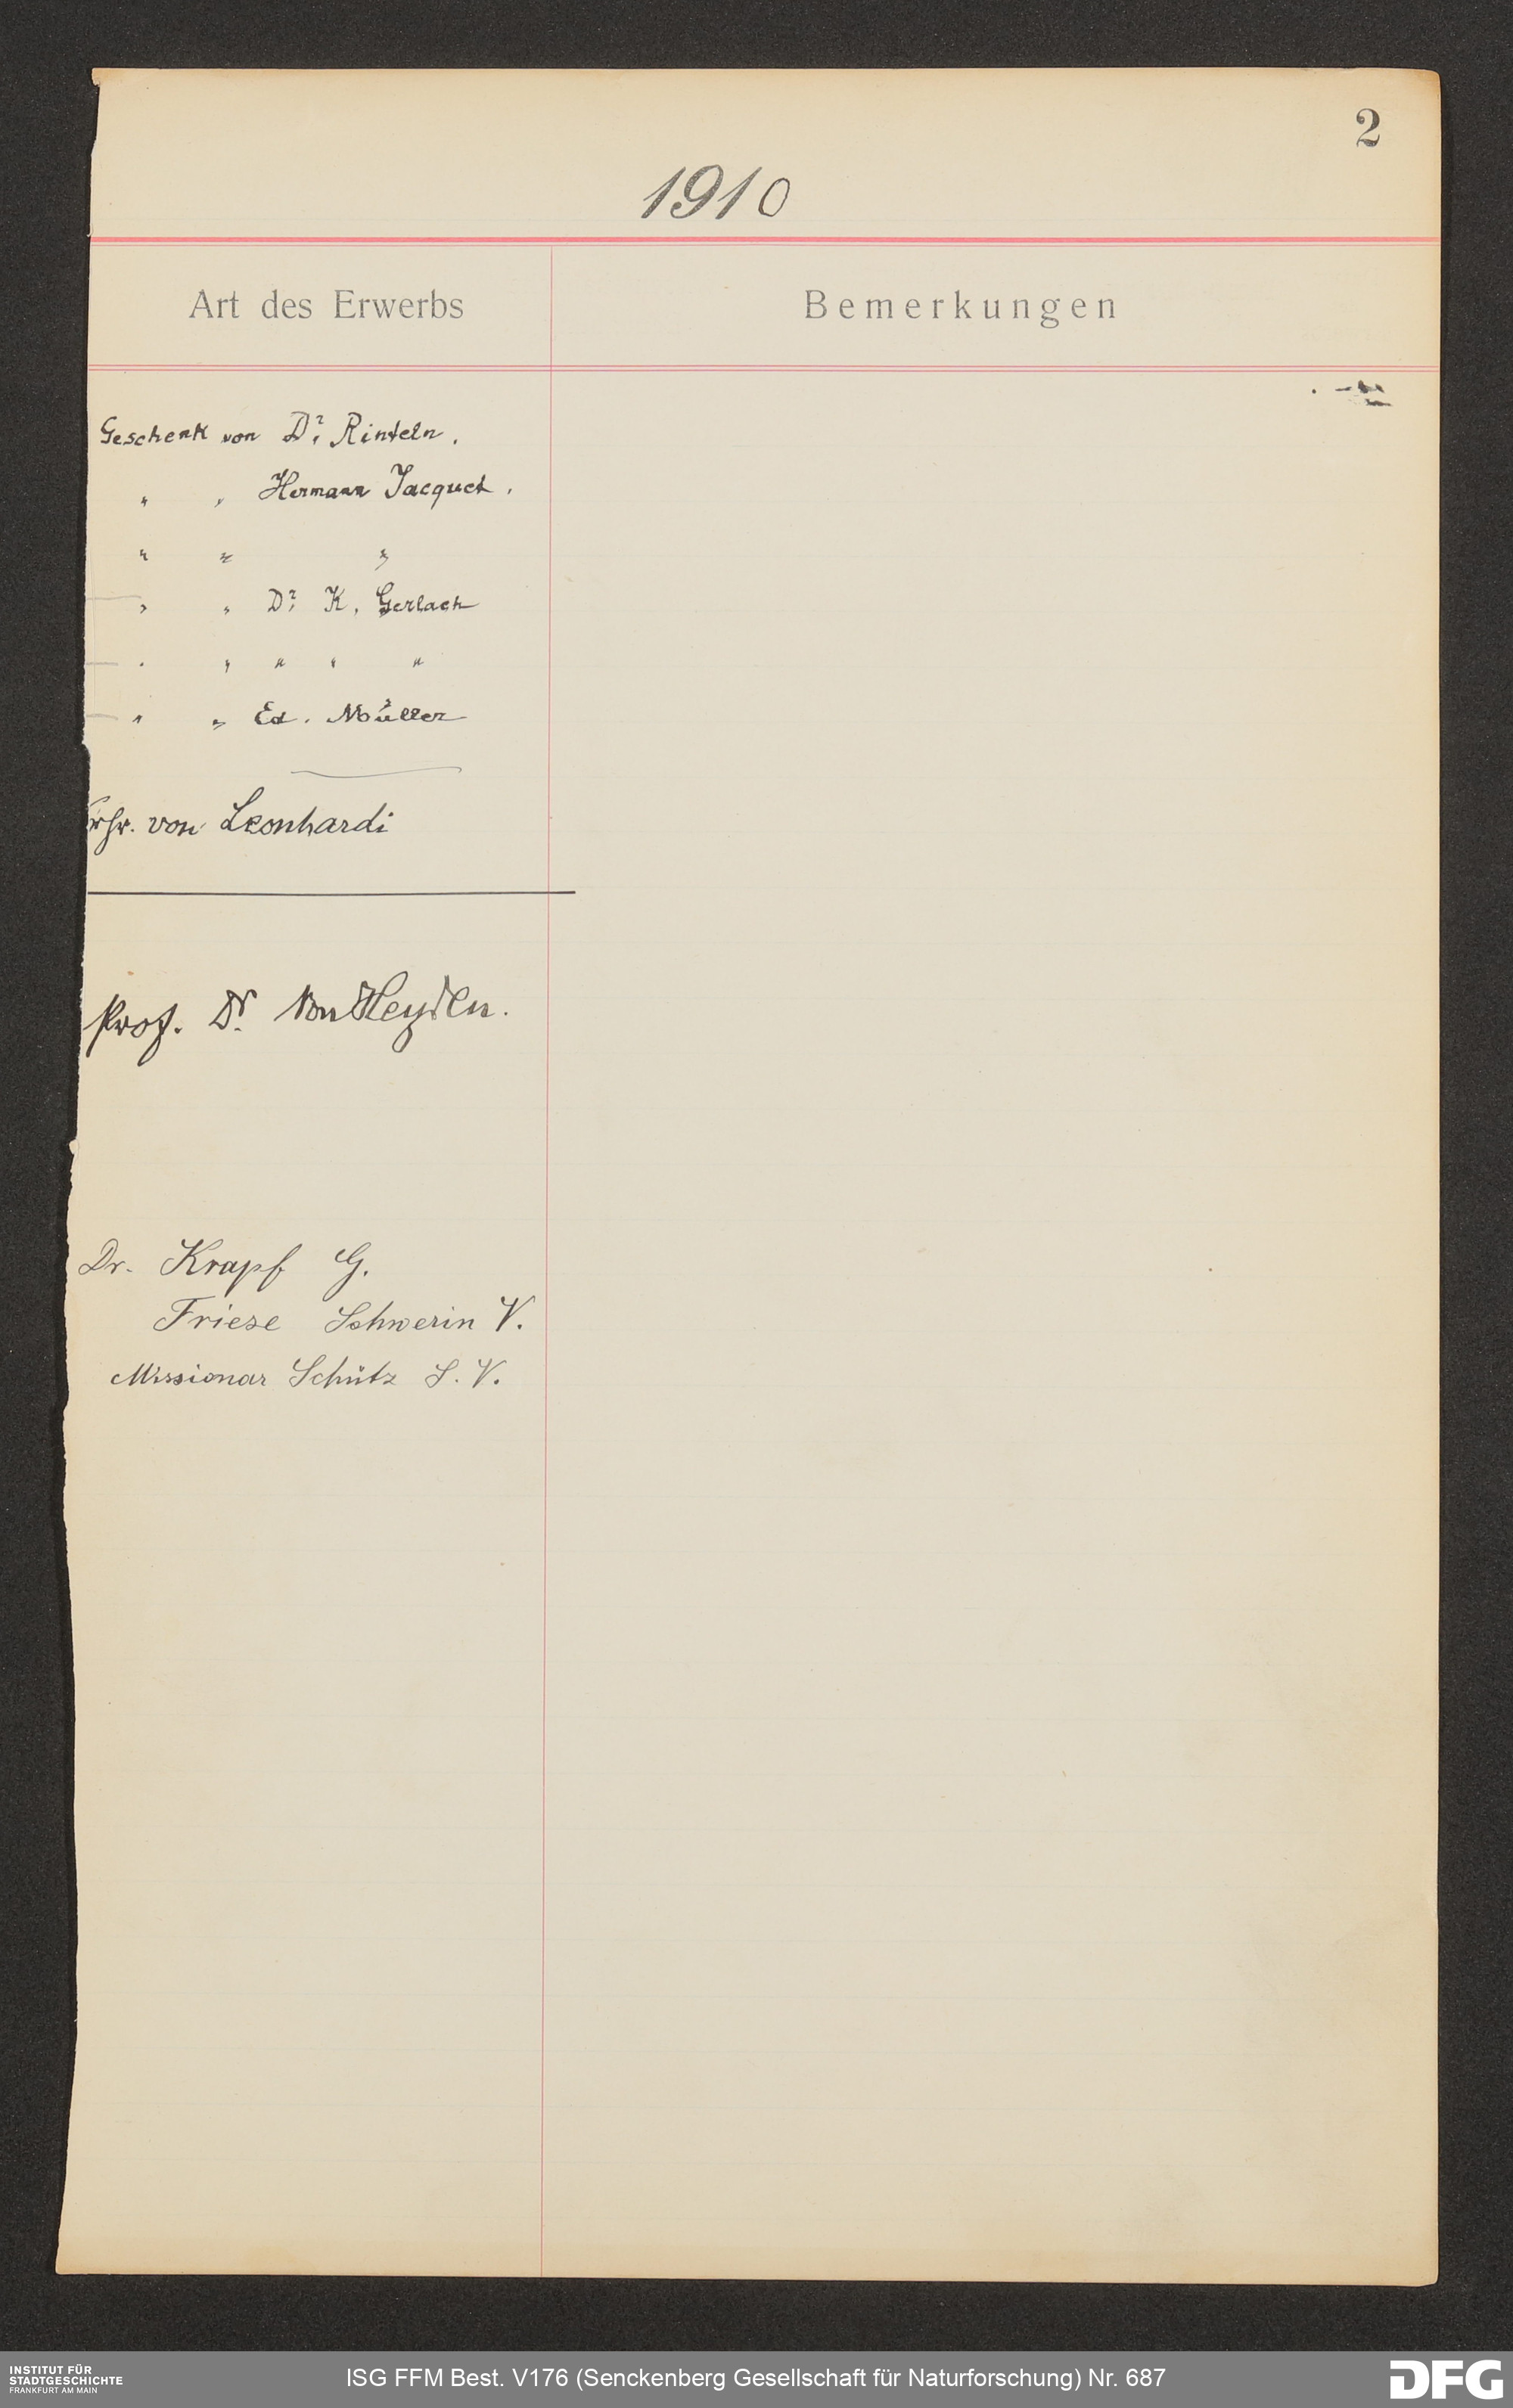 2
1910
Art des Erwerbs
Bemerkungen
Geschenk von Dr. Rinteln.
" " Hermann Jacquet.
" " "
" " Dr. K. Gerlach
" " " " "
" " Ed. Müller
Frhr. von Leonhardi
Prof. Dr. von Heyden.
Dr. Krapf G.
Friese Schwerin V.
Missionar Schütz S. V.
INSTITUT FÜR
STADTGESCHICHTE
FRANKFURT AM MAIN
ISG FFM Best. V176 (Senckenberg Gesellschaft für Naturforschung) Nr. 687
DFG